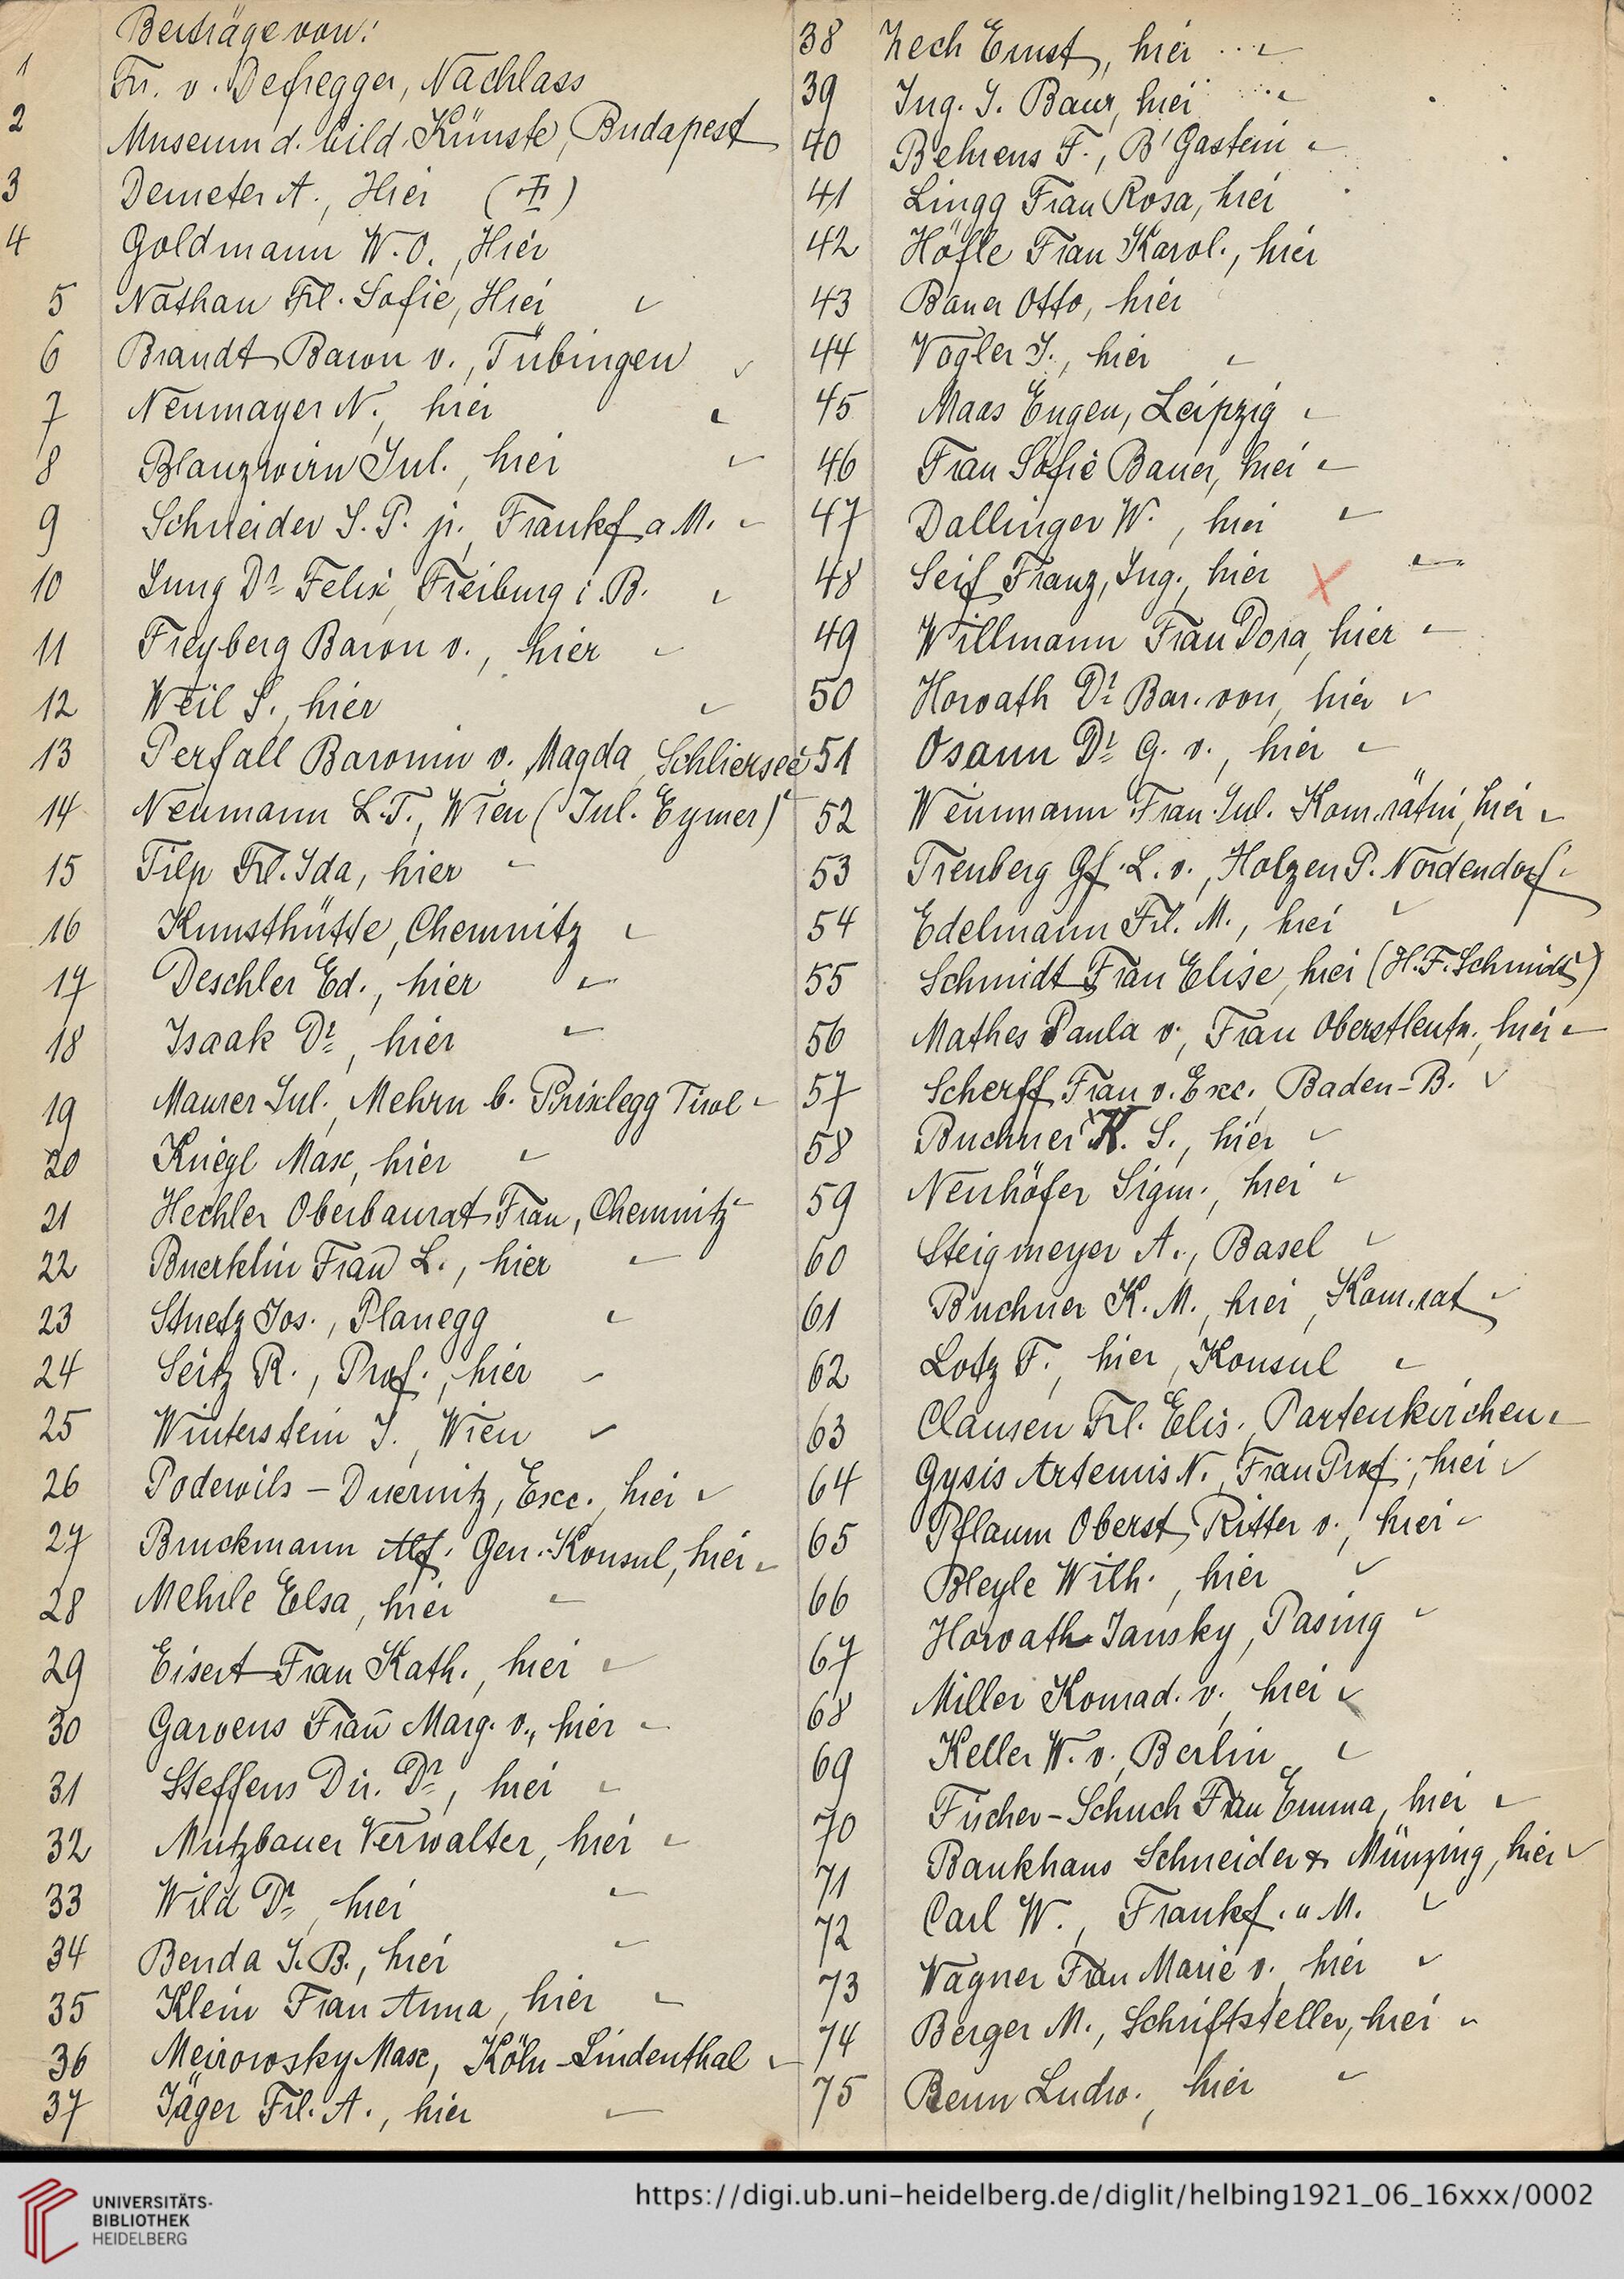 Beiträge von:
1 Fr. v. Defregger, Nachlass
2 Museum d. bild. Künste, Budapest
3 Demeter A., Hier
4 Goldmann W. O., Hier
5 Nathan Frl. Sofie, Hier
6 Brandt Baron v., Tübingen
7 Neumayer N., hier
8 Blanzwirn Jul., hier
9 Schneider J. P. jr. Frankf a. M.
10 Jung Dr Felix, Freiburg i. B.
11 Freyberg Baron v., hier
12 Weil S., hier
13 Perfall Baronin v. Magda, Schliersee
14 Neumann L. T., Wien (Jul. Eymer)
15 Filp Frl. Ida, hier
16 Kunsthütte, Chemnitz
17 Deschler Ed., hier
18 Isaak Dr, hier
19 Maurer Jul., Mehrn b. Brixlegg Tirol
20 Kriegl Max, hier
21 Hechler Oberbaurat Frau, Chemnitz
22 Buerklin Frau L., hier
23 Stuetz Jos., Planegg
24 Seitz R., Prof., hier
25 Winterstein J. Wien
26 Podewils - Duernitz, Exc., hier
27 Bruckmann Alf. Gen.-Konsul, hier
28 Mehrle Elsa, hier
29 Eisert Frau Kath., hier
30 Garvens Frau Marg. v., hier
31 Steffens Dir. Dr, hier
32 Mutzbauer Verwalter, hier
33 Wild Dr, hier
34 Benda J. B., hier
35 Klein Frau Anna, hier
36 Meirowsky Max, Köln-Lindenthal
37 Jäger Frl. A., hier
38 Zech Ernst, hier
39 Ing. J. Baur, hier
40 Behrens F., B'Gastein
41 Lingg Frau Rosa, hier
42 Höfle Frau Karol., hier
43 Bauer Otto, hier
44 Vogler J., hier
45 Maas Eugen, Leipzig
46 Frau Sofie Bauer, hier
47 Dallinger W., hier
48 Seif Franz, Ing., hier
49 Willmann Frau Dora, hier
50 Horvath Dr Bar. von, hier
51 Osann Dr G. v., hier
52 Weinmann Frau Jul. Kom.rätin, hier
53 Treuberg Gf. L. v., Holzen P. Nordendorf
54 Edelmann Frl. M., hier
55 Schmidt Frau Elise, hier (H. F. Schmidt)
56 Mathes Paula v., Frau Oberstleutn., hier
57 Scherff Frau v. Exc., Baden-B.
58 Buchner K. S., hier
59 Neuhöfer Sigm., hier
60 Steigmeyer A., Basel
61 Buchner K. M., hier, Kom.rat
62 Lotz F., hier, Konsul
63 Clausen Frl. Elis., Partenkirchen
64 Gysis Artemis N., Frau Prof., hier
65 Pflaum Oberst, Ritter v., hier
66 Bleyle Wilh., hier
67 Horvath-Jansky, Pasing
68 Miller Konrad. v., hier
69 Keller W. v., Berlin
70 Fischer-Schuch Frau Emma, hier
71 Bankhaus Schneider & Münzing, hier
72 Carl W., Frankf. a M.
73 Wagner Frau Marie v., hier
74 Berger M., Schriftsteller, hier
75 Benn Ludw., hier
UNIVERSITÄTS-
BIBLIOTHEK
HEIDELBERG
https://digi.ub.uni-heidelberg.de/diglit/helbing1921_06_16xxx/0002